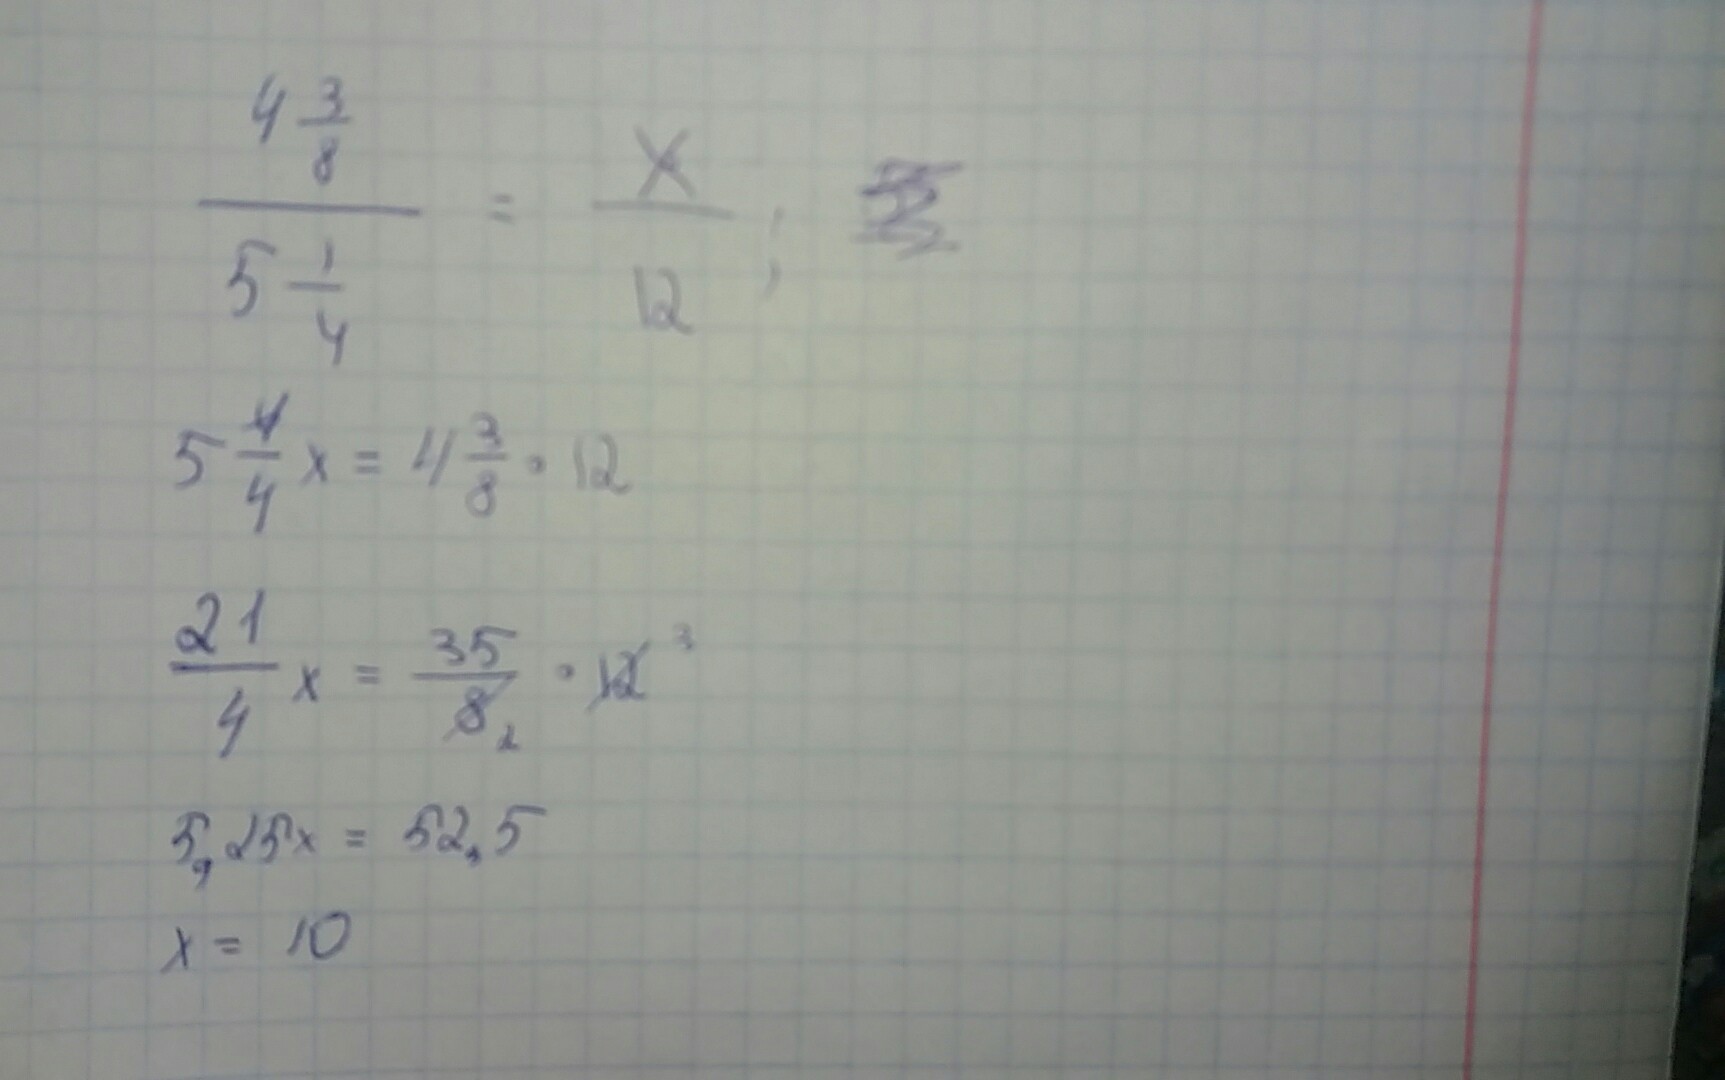 4 3/8 / 5 1/4 = x / 12 ;
5 1/4 x = 4 3/8 · 12
21/4 x = 35/8 2 · 12 3
5,25x = 52,5
x = 10